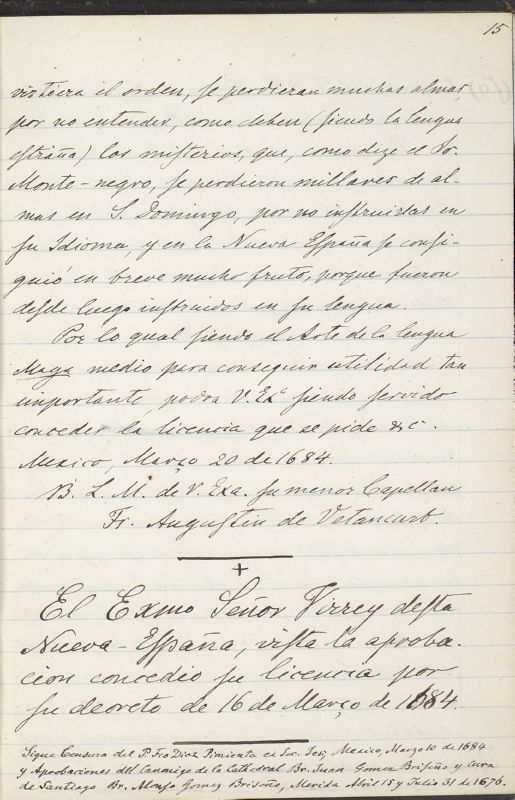 15
virtiera el orden, se perdieran muchas almas
por no entender, como deben (siendo la lengua
estraña) los misterios, que, como dize el Sr.
Monte-negro, se perdieron millares de al-
mas en S. Domingo, por no instruirlas en
su Idioma, y en la Nueva España se consi-
guió en breve mucho fruto, porque fueron
desde luego instruidos en su lengua.
Por lo qual siendo el Arte de la lengua
Maya medio para conseguir utilidad tan
importante, podra V. Exa siendo servido
conceder la licencia que se pide &c.
Mexico, Março 20 de 1684.
B. L. M. de V. Exa. su menor Capellan
Fr. Augustin de Vetancurt.
+
El Exmo Señor Virrey desta
Nueva-España, vista la aproba-
cion concedio su licencia por
su decreto de 16 de Março de 1684.
Sigue Censura del P. Fro Diaz Pimienta de Soc. Jesu, Mexico, Marzo 10 de 1684
y Aprobaciones del Canonigo de la Cathedral Br. Juan Gomez Brizeño y Cura
de Santiago Br. Alonso Gomez Brizeño, Merida Abril 15 y Julio 31 de 1676.